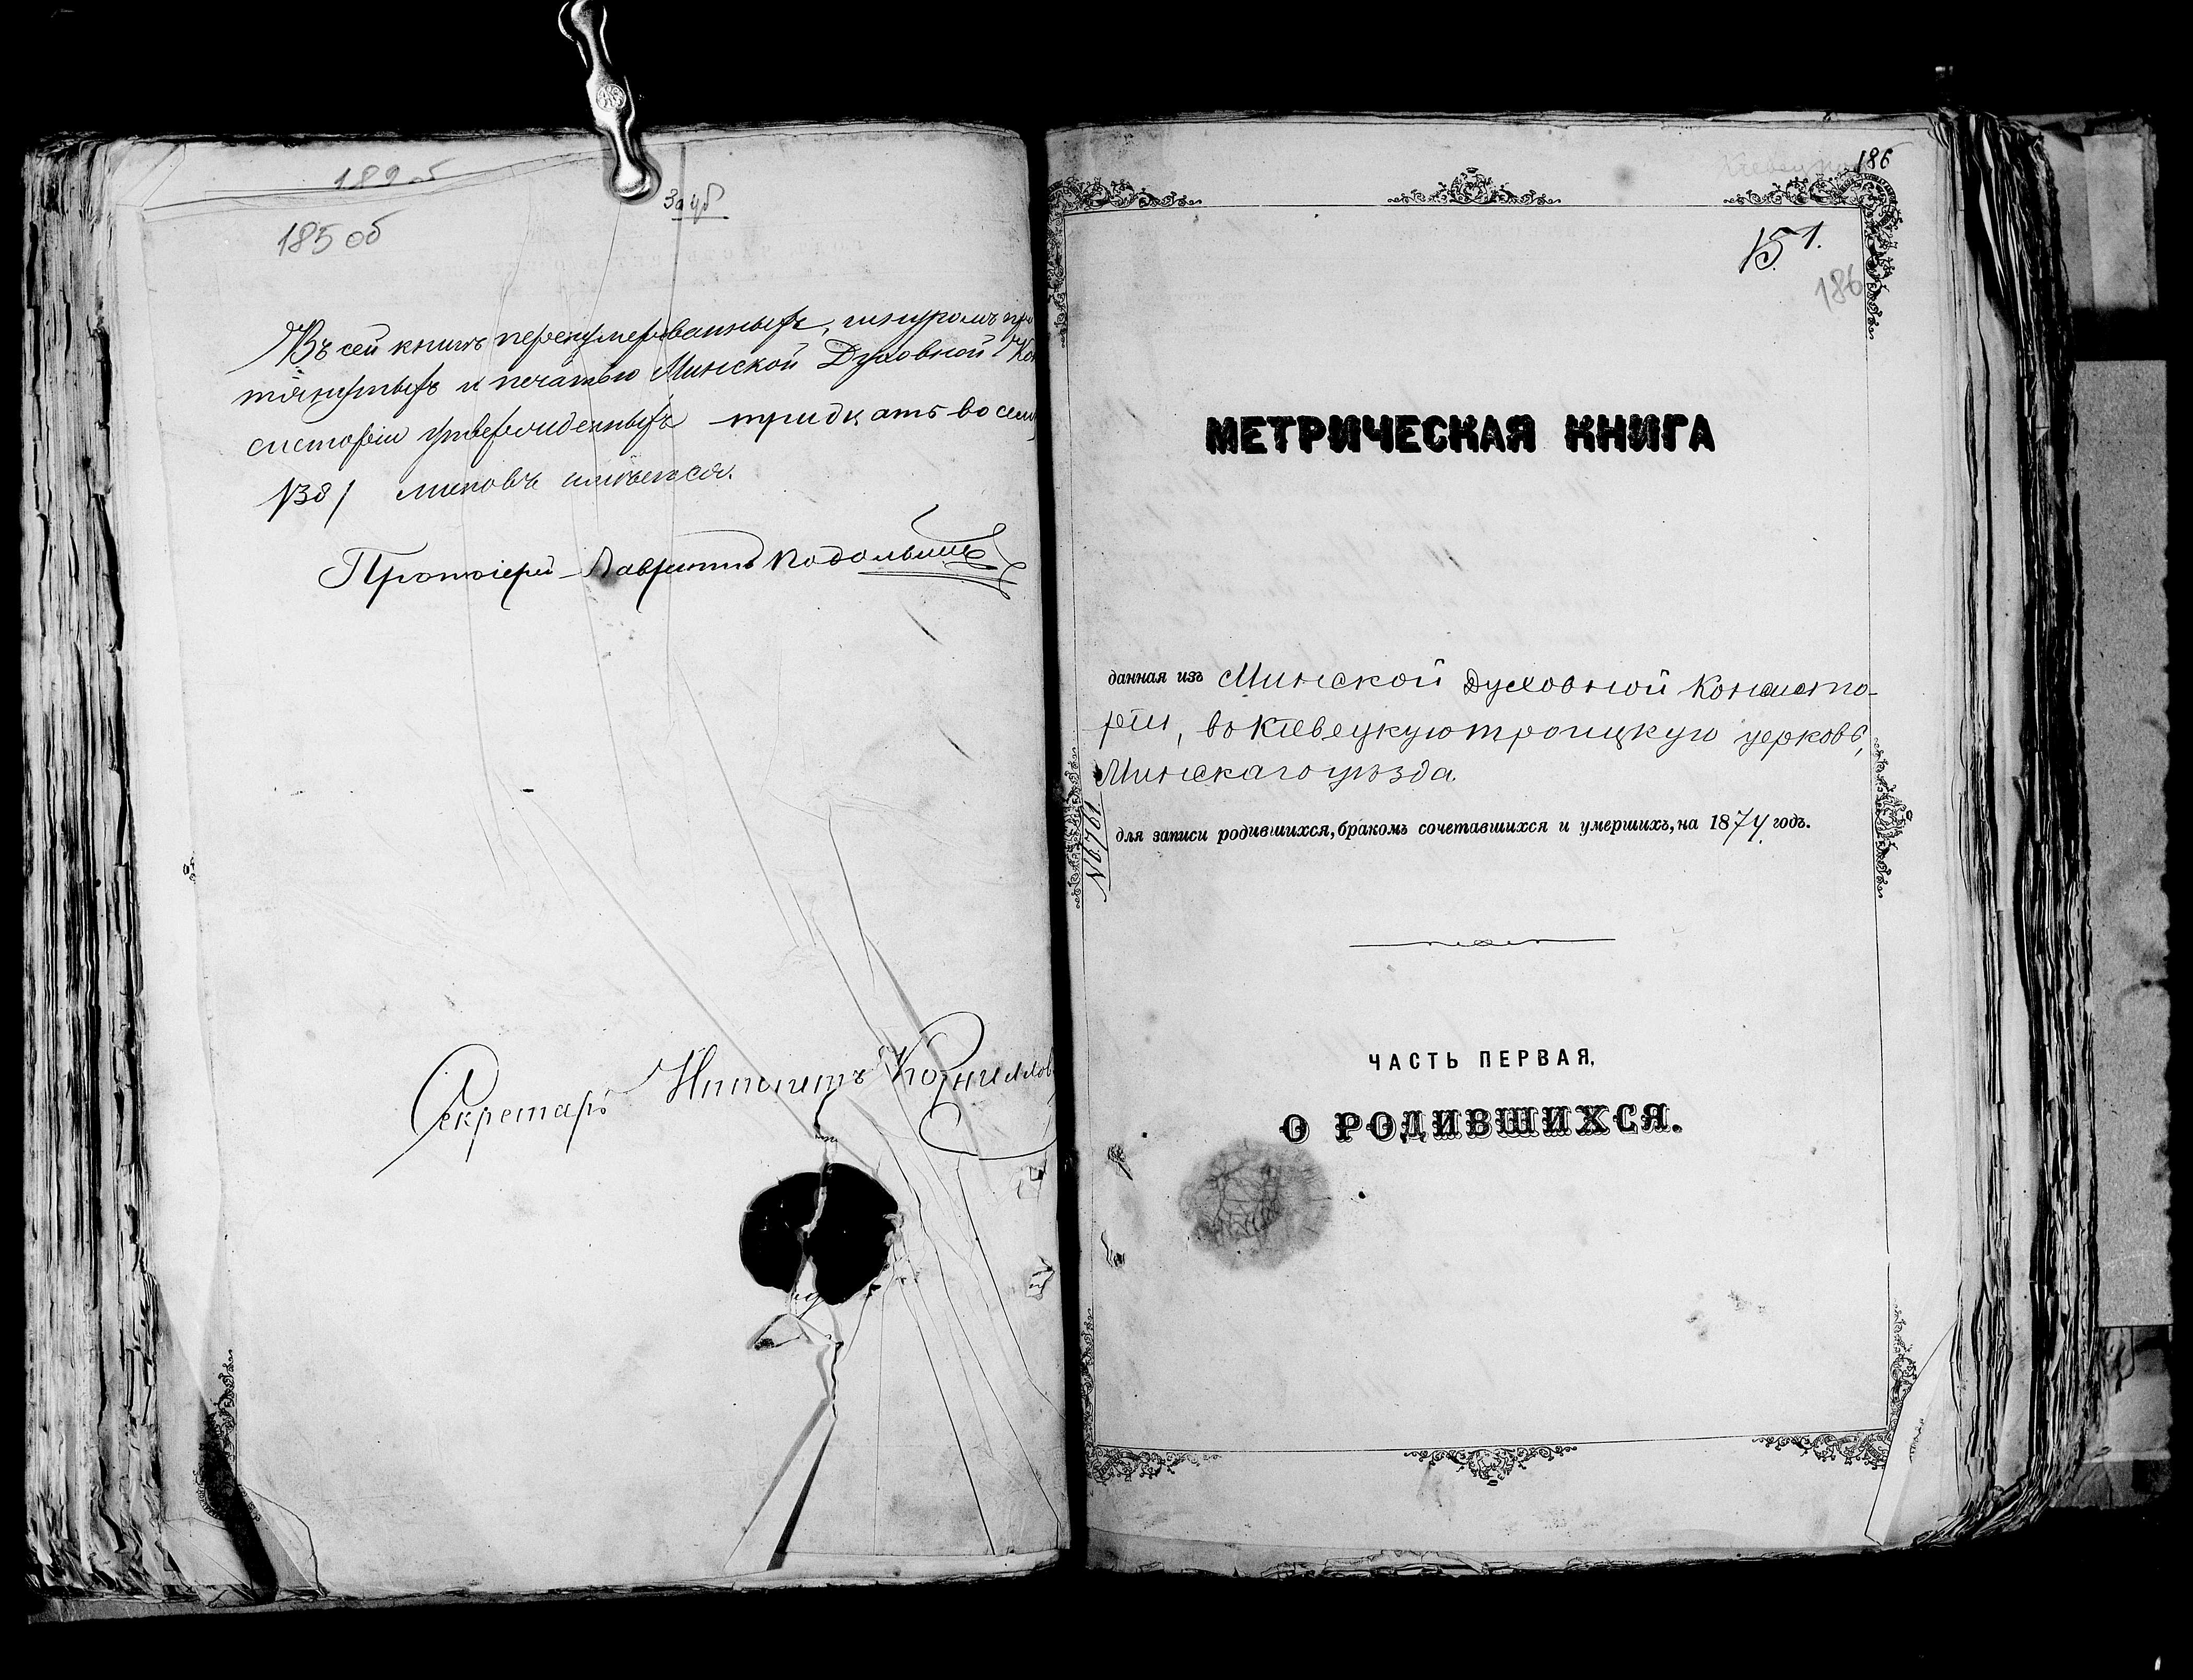 185 об
Въ сей книгѣ перенумерованныхъ, шнуромъ про
тянутыхъ и печатью Минской Духовной Кон
систоріи утвержденныхъ тридцать восемь
/38/ листовъ имѣется.
Протоіерей Лаврентій
Секретарь Ипполитъ
186
15. 1.
186
МЕТРИЧЕСКАЯ КНИГА
данная изъ Минской Духовной Консисто-
ріи, въ Кіевецкую троицкую церковь,
Минскаго уѣзда.
№6761
для записи родившихся, бракомъ сочетавшихся и умершихъ, на 1874 годъ.
ЧАСТЬ ПЕРВАЯ,
О РОДИВШИХСЯ.